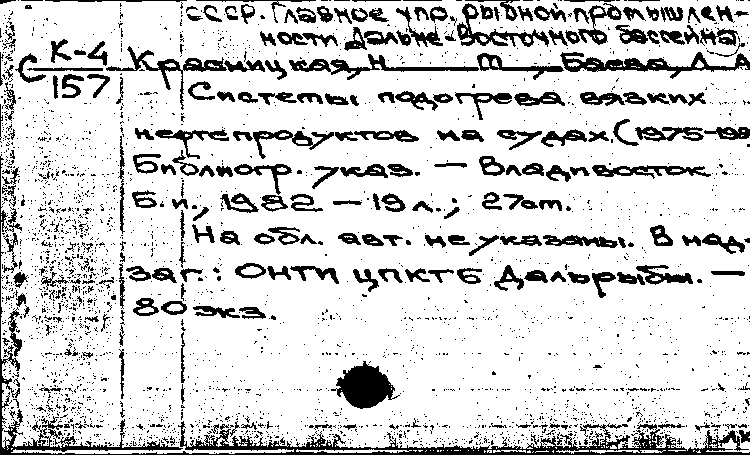 СССР. Главное упр. рыбной промышлен-
ности Дальне-Восточного бассейна
С К-4
157
Красницкая, Н Т, Баева, Л А
Системы подогрева вязких
нефтепродуктов на судах. (1975-198
Библиогр. указ. — Владивосток:
Б.и., 1982 — 19 л.; 27 см.
На обл. авт. не указаны. В над-
заг.: ОНТИ ЦПКТБ Дальрыбы. —
80 экз.